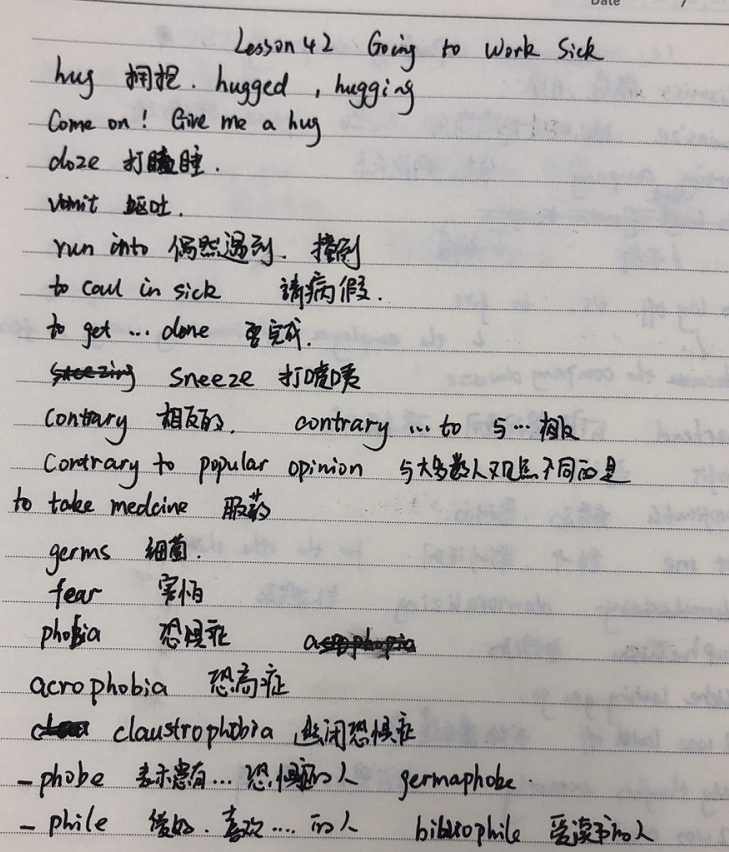 Date
Lesson 42 Going to Work Sick
hug 拥抱. hugged , hugging
Come on! Give me a hug
doze 打瞌睡.
vomit 呕吐.
run into 偶然遇到. 撞倒
to call in sick 請病假.
to get ... done 要完成.
sneeze 打喷嚏
contrary 相反的. contrary ... to 与...相反
Contrary to popular opinion 与大多数人观点不同的是
to take medcine 服药
germs 细菌.
fear 害怕
phobia 恐惧症
acrophobia 恐高症
claustrophobia 幽闭恐惧症
-phobe 表示患有... 恐惧症的人 germaphobe.
-phile 爱好. 喜欢....的人 bibliophile 爱读书的人